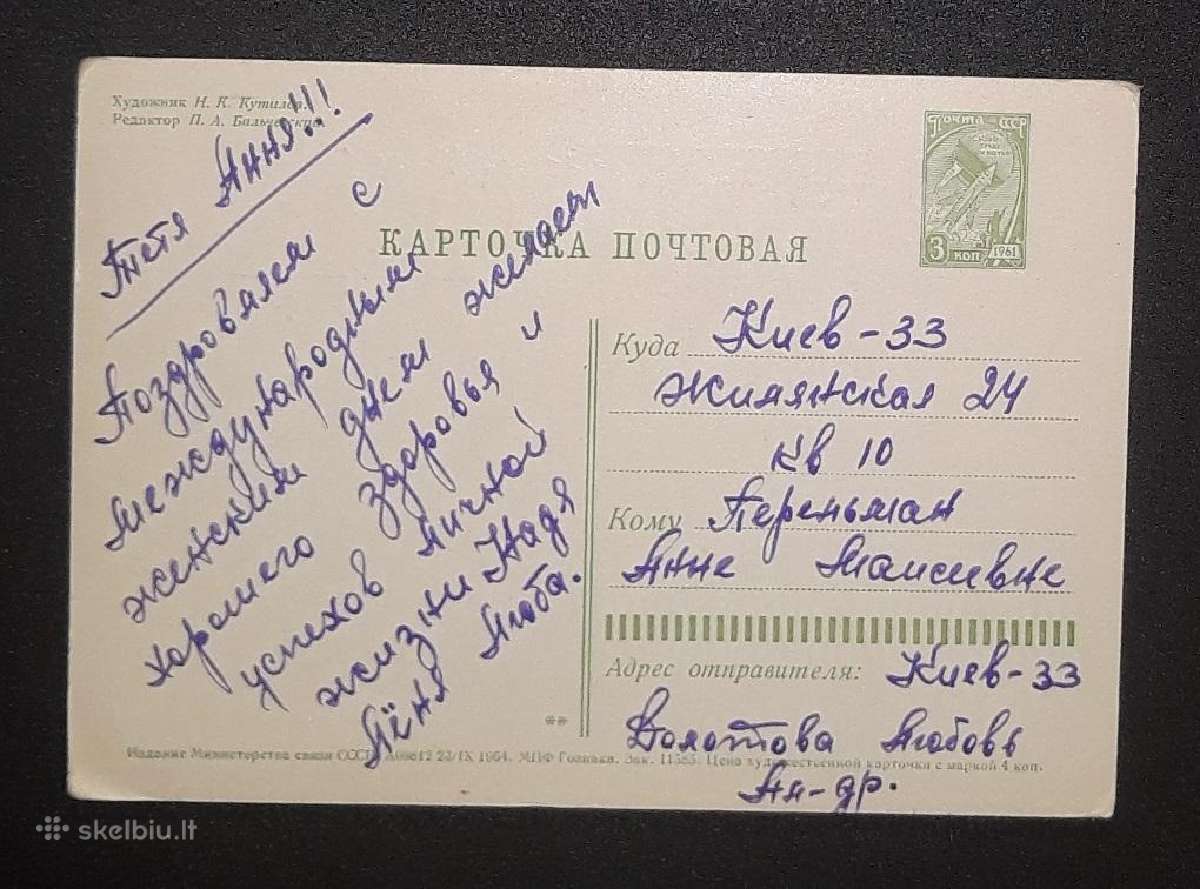 Художник Н. К. Кутилов
Редактор П. А.
ПОЧТА СССР
3 КОП
1961
КАРТОЧКА ПОЧТОВАЯ
Тётя Ання!!!
Поздровляем с
международным
женским днем желаем
хорошего здоровья и
успехов личной
жизни Надя
Лёня Люба.
Куда Киев-33
Жилянская 24
кв 10
Кому Перельман
Анне Моисеевне
Адрес отправителя: Киев-33
Болотова Любовь
Ал-др.
**
Издание Министерства связи СССР 22/IX 1964. МПФ Гознака. Зак. 11585. Цена художественной карточки с маркой 4 коп.
skelbiu.lt